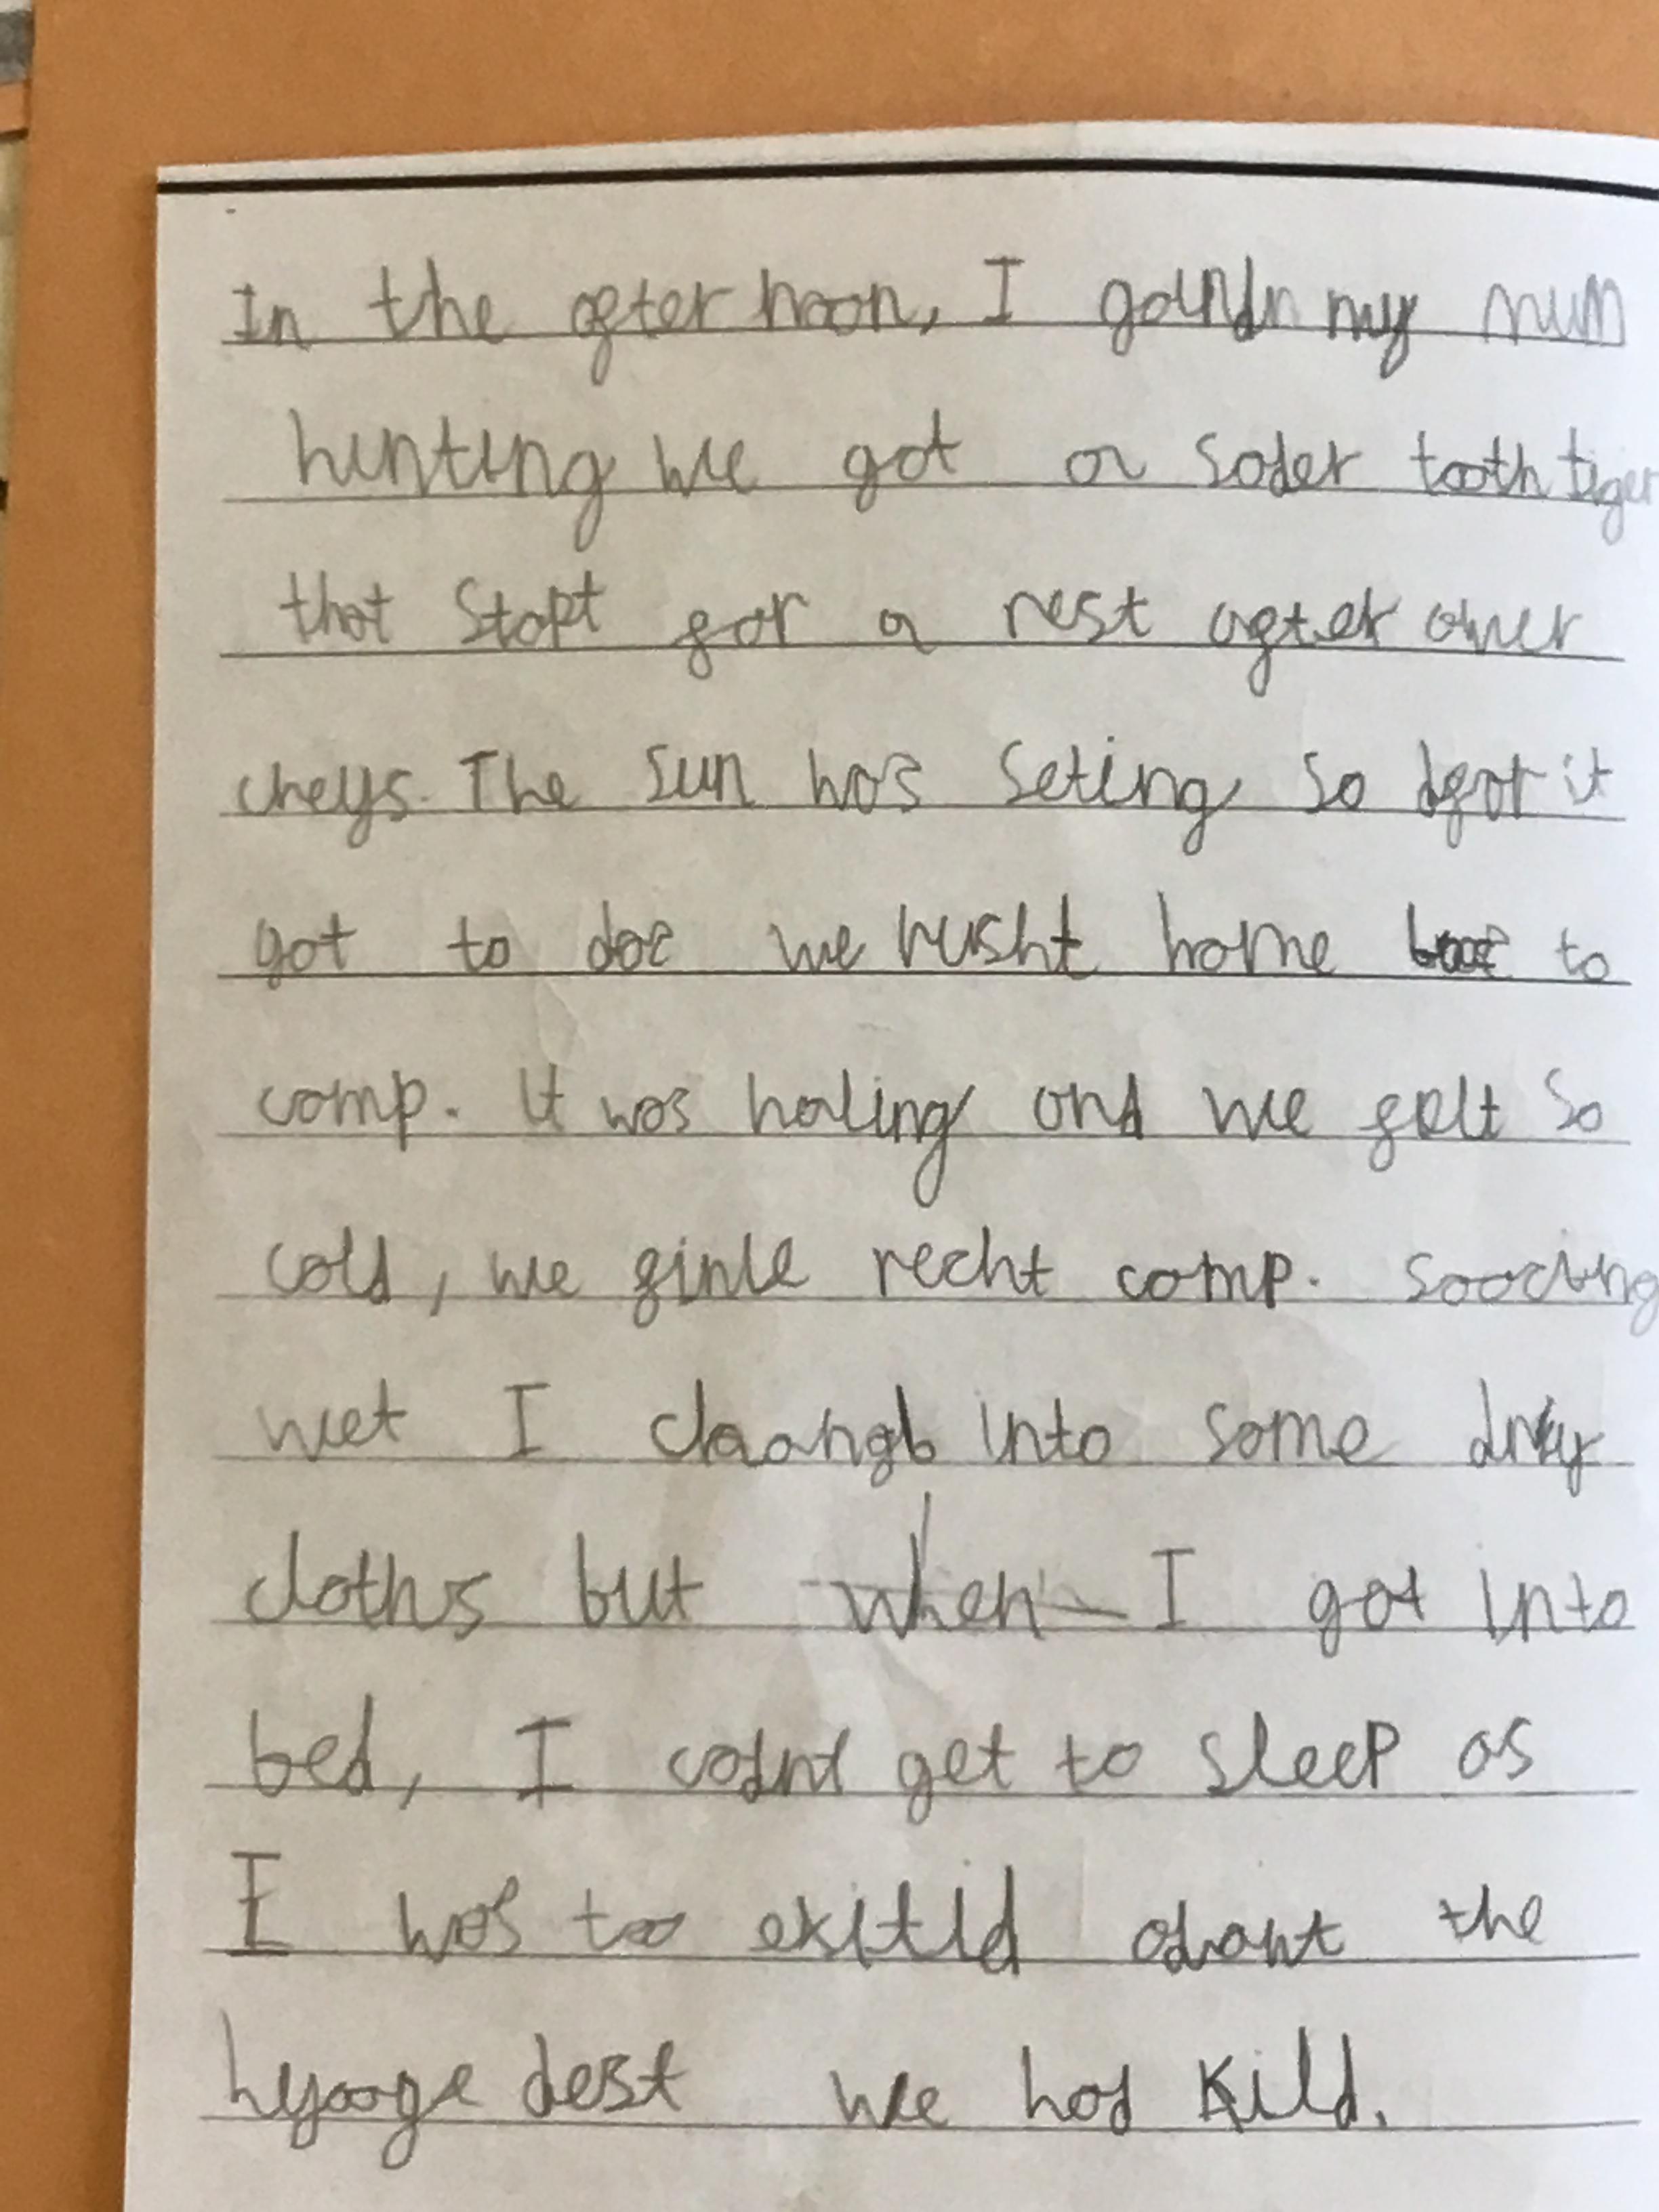 In the after noon, I goindn my mum
hunting we got a saber tooth tiger
that stopt for a rest after ower
cheys. The sun was seting so defor it
got to doc we rusht home to
camp. It was haling and we felt so
cold, we finle recht camp. Soocing
wet I chaangb into some dry
cloths but when I got into
bed, I codnt get to sleep as
I was too exitid adowt the
hyooge dest we had kild.